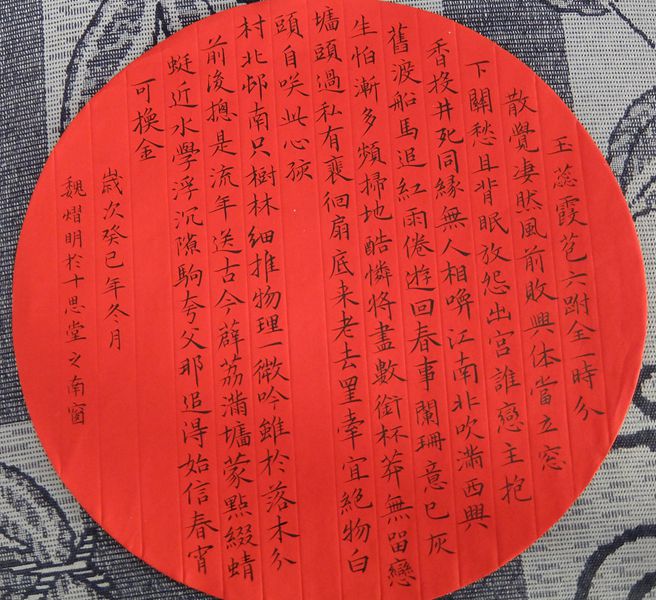 玉蕊霞苞六跗全一時分
散覺淒然風前敗興休當立窓
下關愁且背眠放怨出宮誰戀主抱
香投井死同緣無人相喚江南非吹滿西興
舊渡船馬追紅雨倦遊回春事闌珊意已灰
生怕漸多頻掃地酷憐將盡數銜杯莽無留戀
墻頭過私有裵徊扇底来老去罣牽宜絕物白
頭自咲此心孩
村北邨南只樹林細推物理一微吟雖於落木分
前後摠是流年送古今薜荔滿墻蒙點綴蜻
蜓近水學浮沉隙駒夸父那追淂始信春宵
可換金
歲次癸巳年冬月
魏熠明於十思堂之南窗